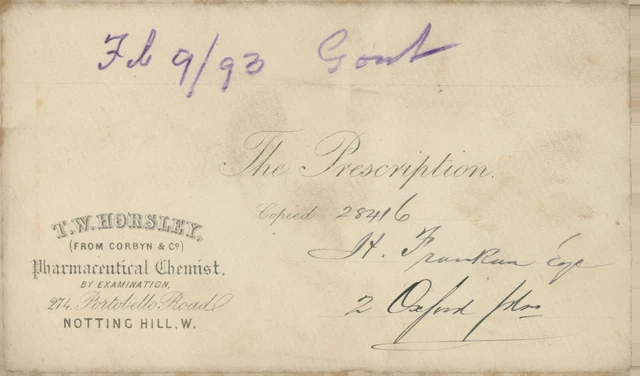 Feb 9/93 Gout
The Prescription.
Copied 28416
H. Esqr
2 Oxford
T.W. HORSLEY,
(FROM CORBYN & Co)
Pharmaceutical Chemist,
BY EXAMINATION,
274, Portobello Road
NOTTING HILL, W.